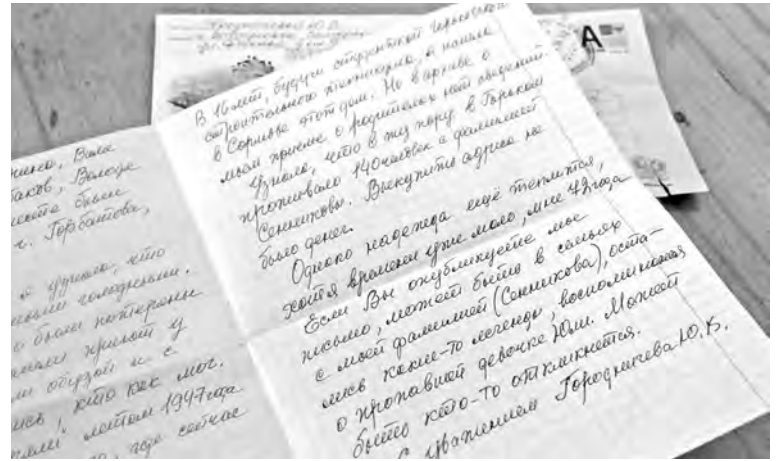 А
Володе
были
г. Горбатова,
я узнала, что
голодными.
о были потеряны
приют у
обузой и с
кто как мог.
летом 1947 года
где сейчас
В 16 лет, будучи студенткой
строительного техникума, я нашла
в Сормове этот дом. Но в архиве о
моём приёме о родителях нет сведений.
Узнала, что в ту пору в Горьком
проживало 140 человек с фамилией
Сенниковы. Выкупить адреса не
было денег.
Однако надежда ещё теплится,
хотя времени уже мало, мне года
Если Вы опубликуете мое
письмо, может быть в семьях
с моей фамилией (Сенникова), оста-
лись какие-то легенды, воспоминания
о пропавшей девочке Юли. Может
быть кто-то откликнется.
С уважением Городничева Ю.В.